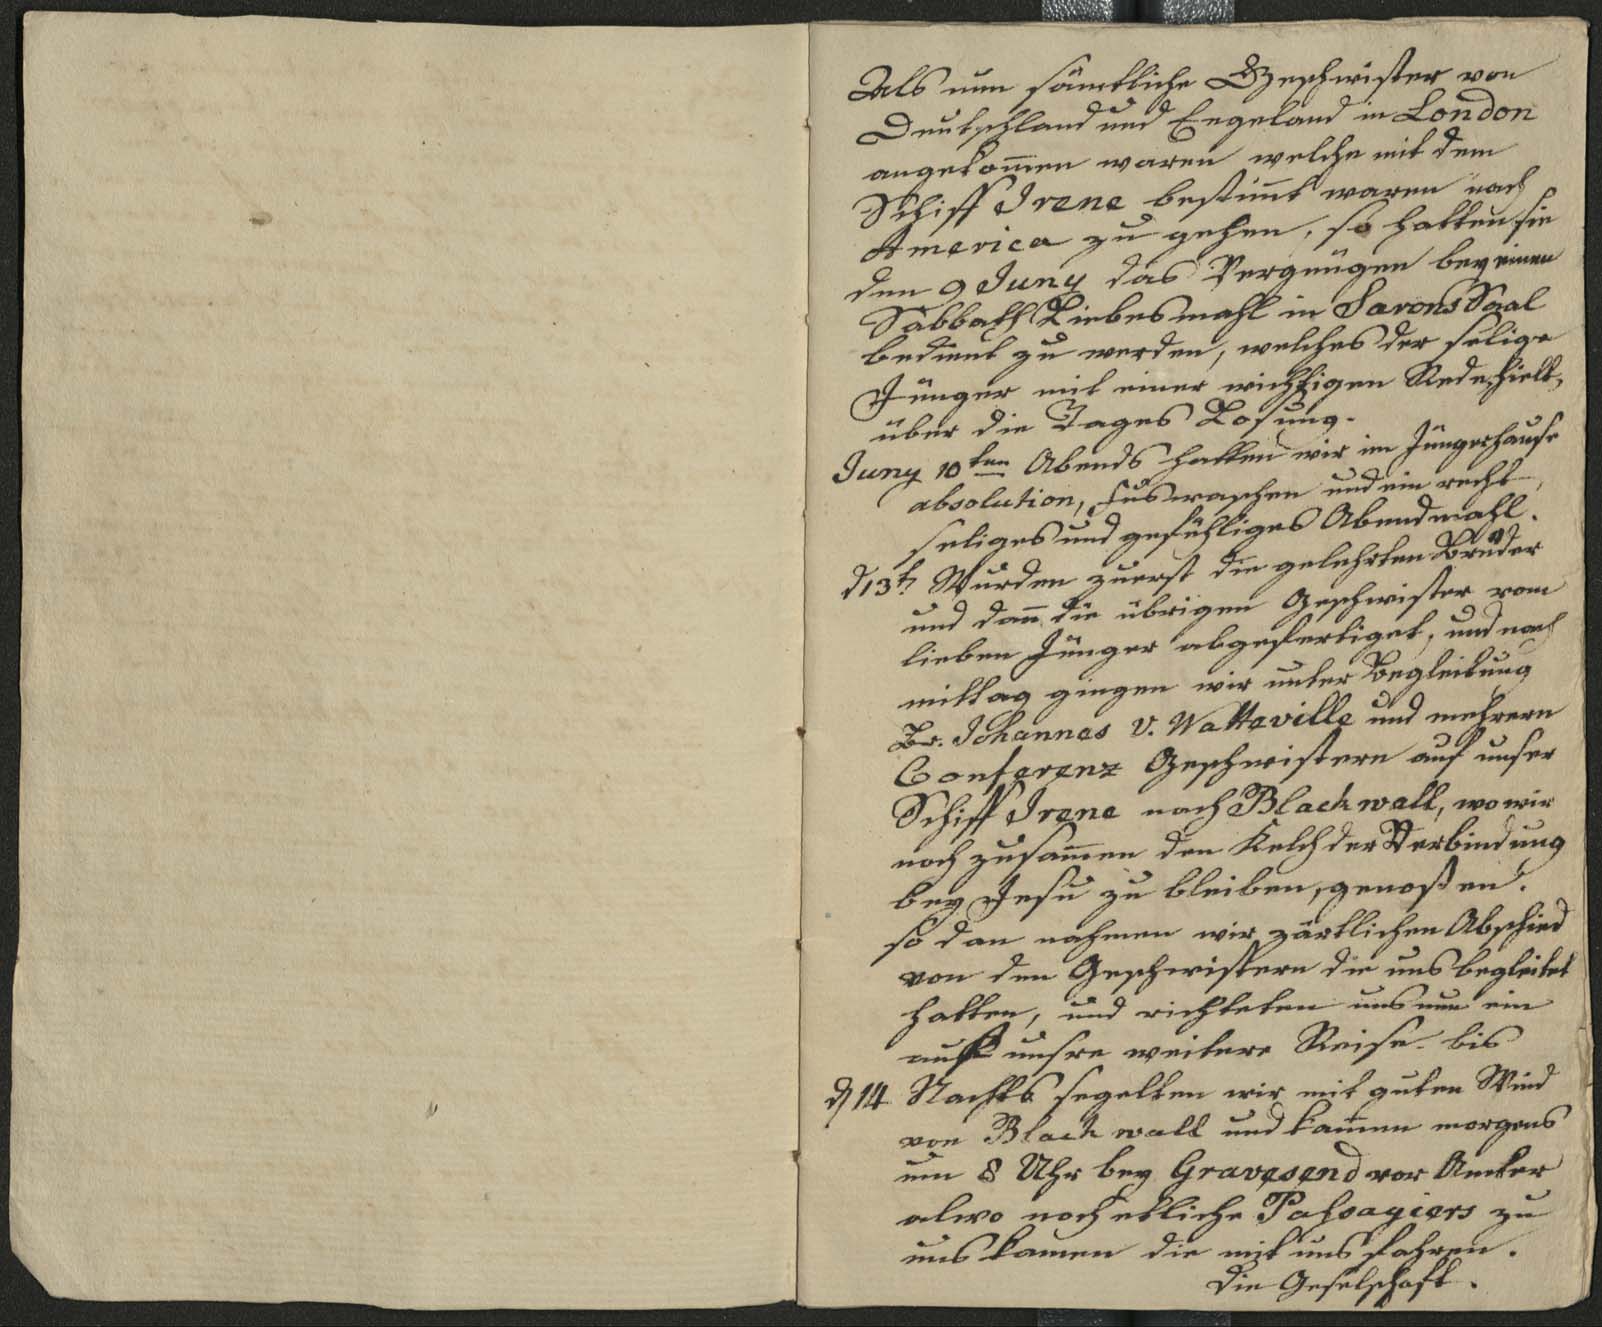 Als nun sämtliche Geschwister von
Deutschland und Engeland in London
angekom̅en waren welche mit dem
Schiff Irene bestim̅t waren nach
America zu gehen, so hatten sie
den 9 Juny das Vergnügen bey einen
Sabbath Liebesmahl in Sarons Saal
bedient zu werden, welches der selige
Jünger mit einer wichtigen Rede hielt,
über die Tages Losung.
Juny 10ten Abends hatten wir im Jüngerhause
absolution, Fuswaschen und ein recht
seliges und gefühliges Abendmahl.
d 13t. Wurden zuerst die gelehrten Brüder
und dan̅ die übrigen Geschwister vom
lieben Jünger abgefertiget, und nach
mittag giengen wir unter Begleitung
Br. Johannes v. Watteville und mehrern
Conferenz Geschwistern auf unser
Schiff Irene nach Blackwall, wo wir
noch zusam̅en den Kelch der Verbindung
bey Jesu zu bleiben, genoßen.
so dan nahmen wir zärtlichen Abschied
von den Geschwistern die uns begleitet
hatten, und richteten uns nun ein
auf unsre weitere Reise. bis
d 14 Nachts segelten wir mit guten Wind
von Black wall und kamen morgens
um 8 Uhr bey Gravesend vor Anker
alwo noch etliche Passagiers zu
uns kamen die mit uns fahren.
die Geselschaft.